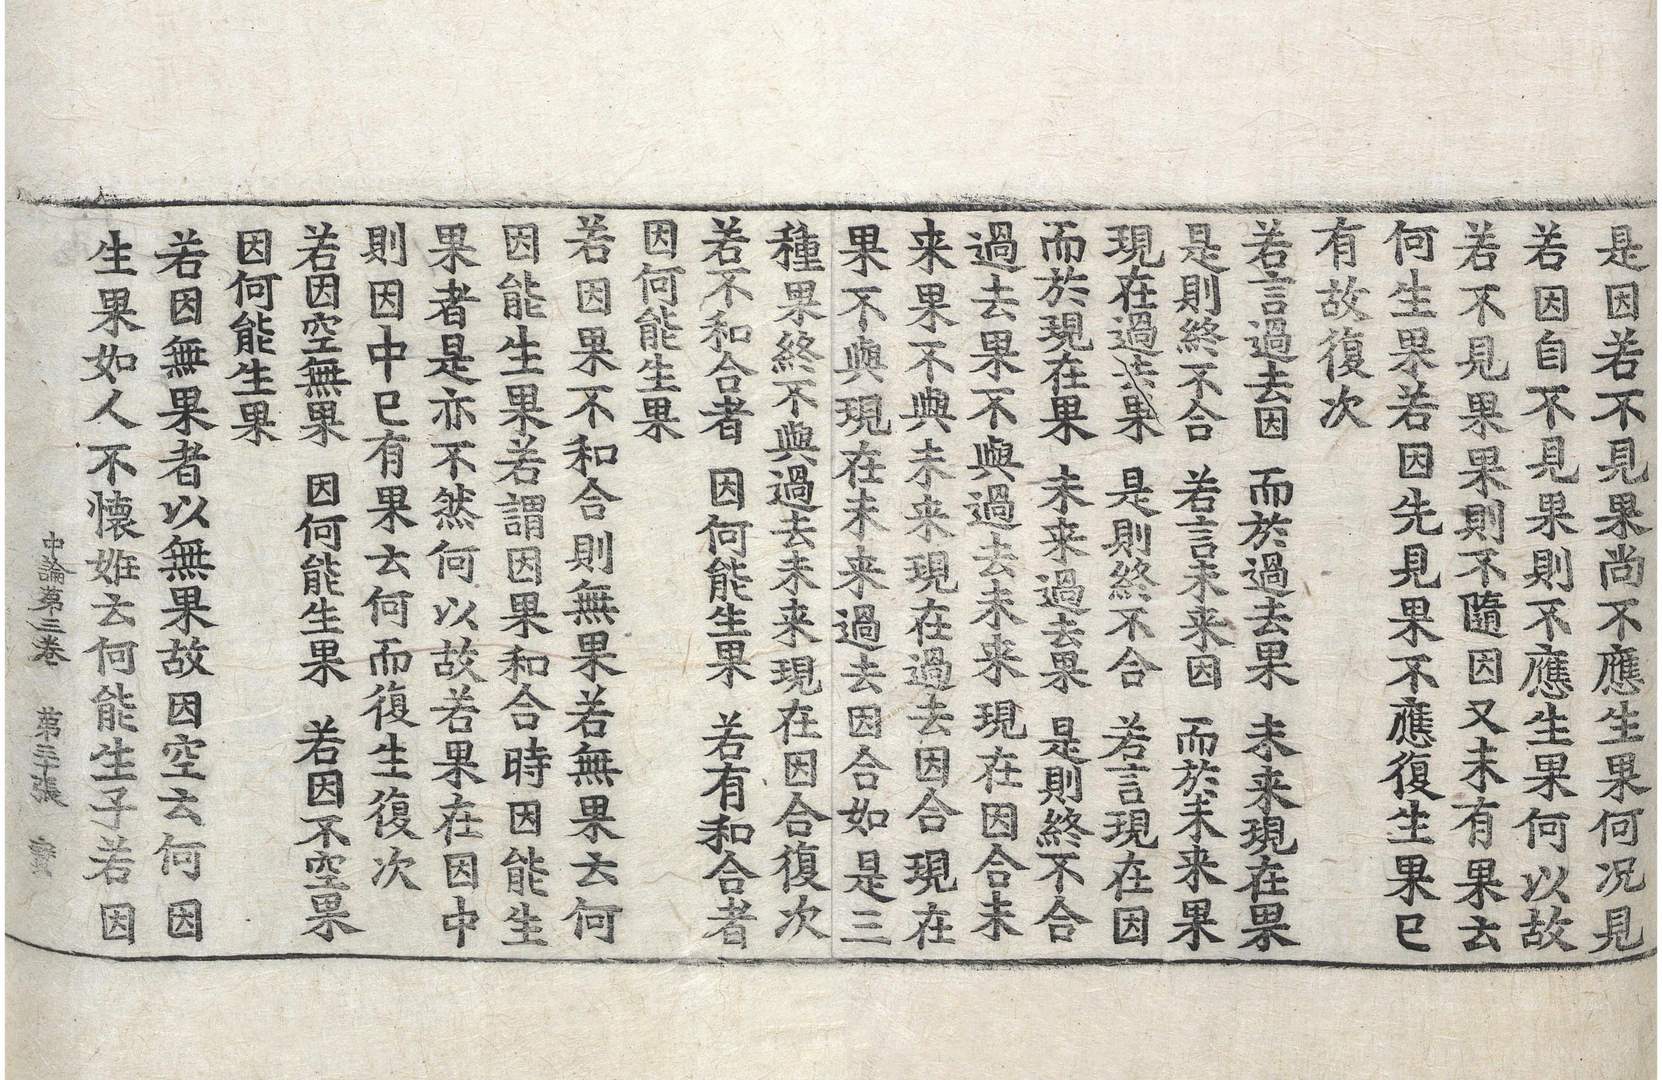 是因若不見果尚不應生果何况見
若因自不見果則不應生果何以故
若不見果果則不隨因又未有果云
何生果若因先見果不應復生果已
有故復次
若言過去因　而於過去果　未来現在果
是則終不合　若言未来因　而於未来果
現在過去果　是則終不合　若言現在因
而於現在果　未来過去果　是則終不合
過去果不與過去未来現在因合未
来果不與未来現在過去因合現在
果不與現在未来過去因合如是三
種果終不與過去未来現在因合復次
若不和合者　因何能生果　若有和合者
因何能生果
若因果不和合則無果若無果云何
因能生果若謂因果和合時因能生
果者是亦不然何以故若果在因中
則因中已有果云何而復生復次
若因空無果　因何能生果　若因不空果
因何能生果
若因無果者以無果故因空云何因
生果如人不懷姙云何能生子若因
中論第三卷　第三十張